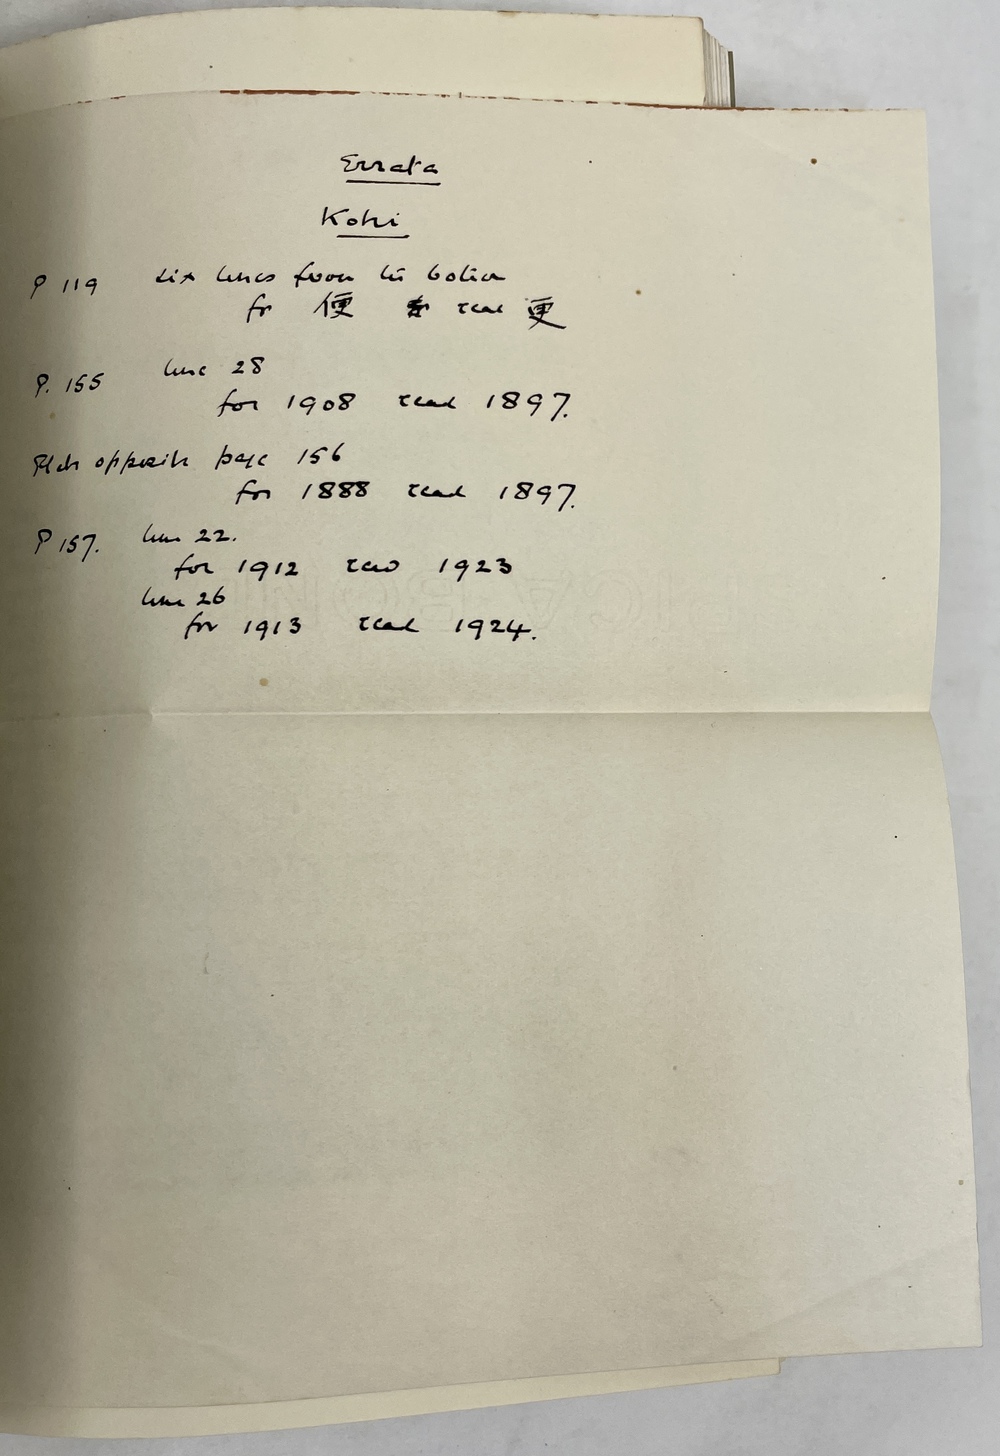 Errata
Kohi
P 119 six lines from the bottom
for 便 read 更
P. 155 line 28
for 1908 read 1897.
Plate opposite page 156
for 1888 read 1897.
P 157. line 22.
for 1912 read 1923
line 26
for 1913 read 1924.